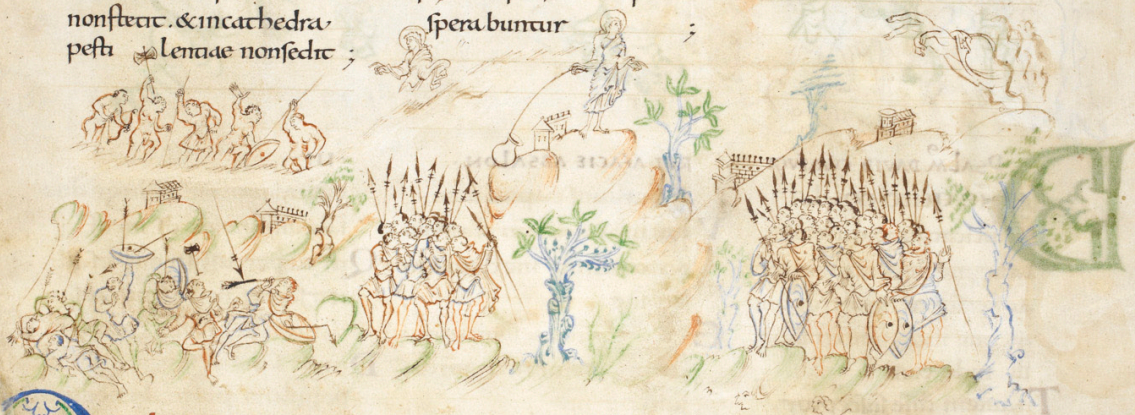 nonstetit. &incathedra
pesti lentiae nonsedit ;
sperabuntur ;